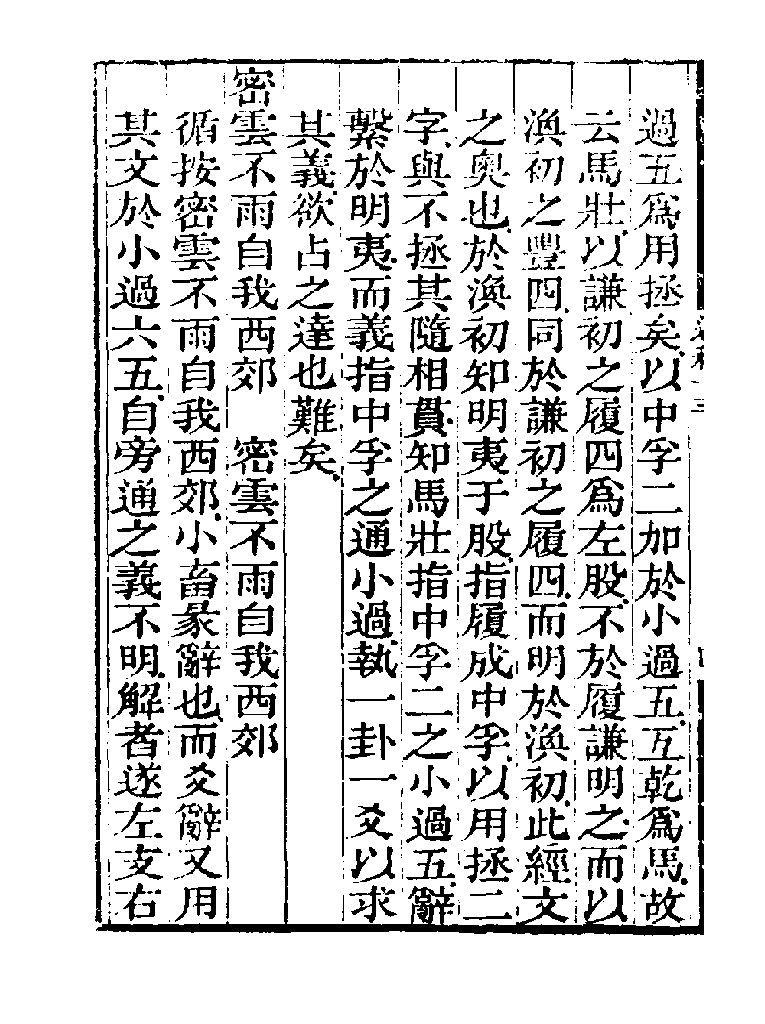 過五爲用拯矣以中孚二加於小過五互乾爲馬故
云馬壯以謙初之履四爲左股不於履謙明之而以
渙初之豐四同於謙初之履四而明於渙初此經文
之奧也於渙初知明夷于股指履成中孚以用拯二
字與不拯其隨相貫知馬壯指中孚二之小過五辭
繫於明夷而義指中孚之通小過執一卦一爻以求
其義欲占之達也難矣
密雲不雨自我西郊　密雲不雨自我西郊
循按密雲不雨自我西郊小畜彖辭也而爻辭又用
其文於小過六五自旁通之義不明解者遂左支右